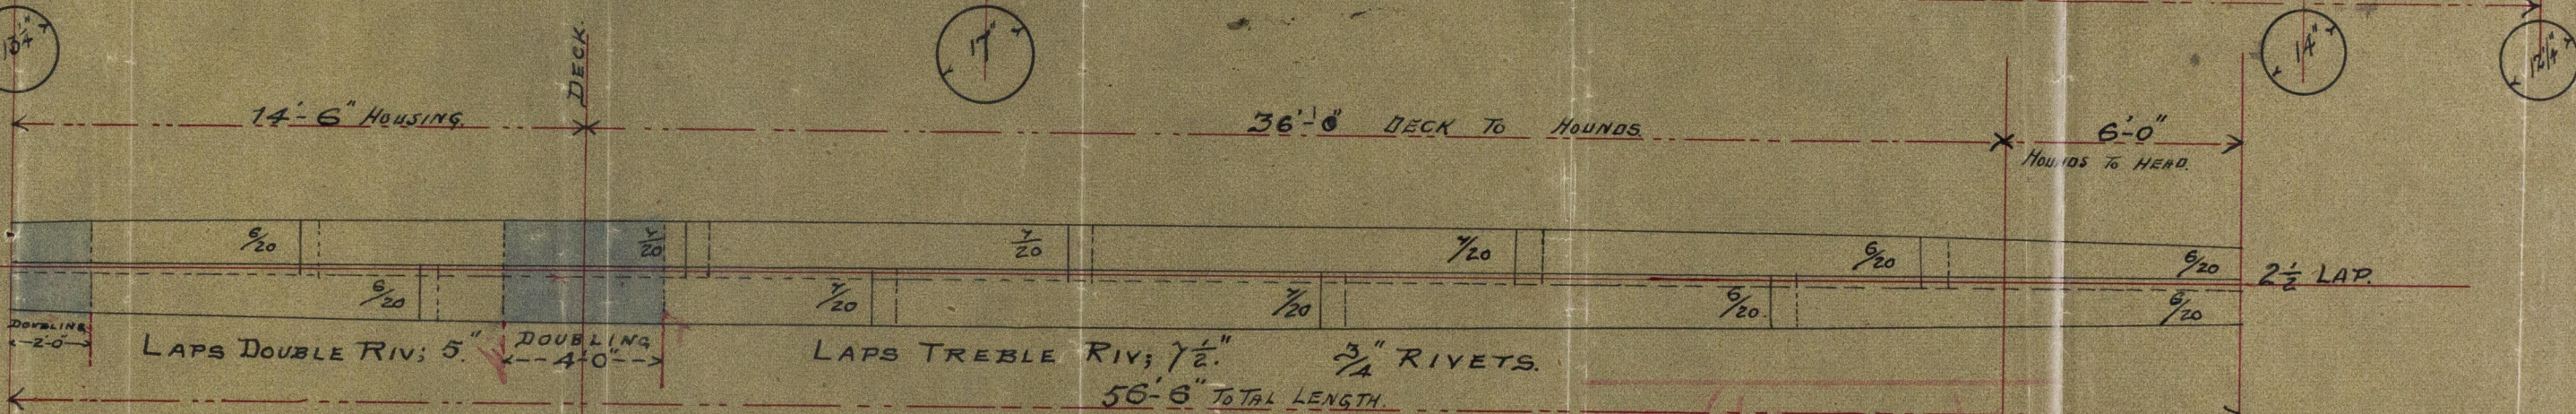 13¼"
DECK.
17"
14"
12¼"
14'-6" HOUSING.
36'-0" DECK TO HOUNDS.
6'-0"
HOUNDS TO HEAD.
6/20
7/20
7/20
7/20
6/20
6/20
2½ LAP.
6/20
7/20
7/20
6/20
6/20
DOUBLING
2'-0"
LAPS DOUBLE RIV; 5."
DOUBLING
4'-0"
LAPS TREBLE RIV; 7½."
¾" RIVETS.
56'-6" TOTAL LENGTH.